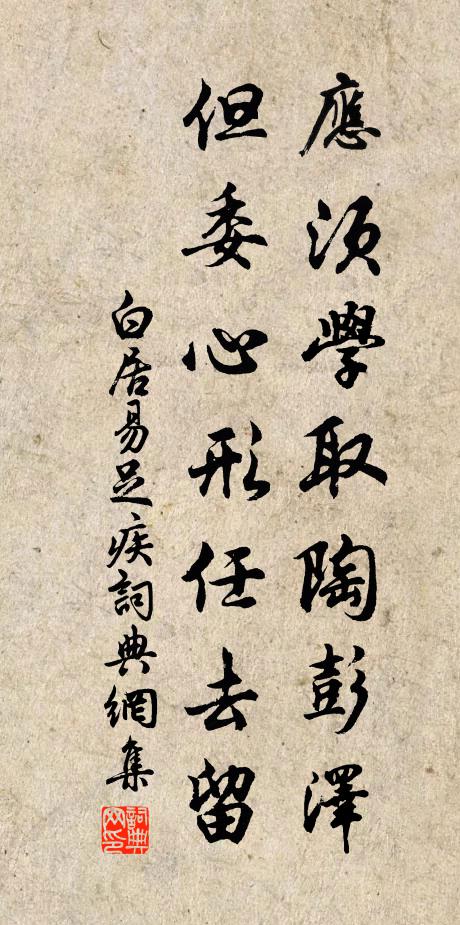 應須學取陶彭澤
但委心形任去留
白居易足疾詞典網集
詞典網印